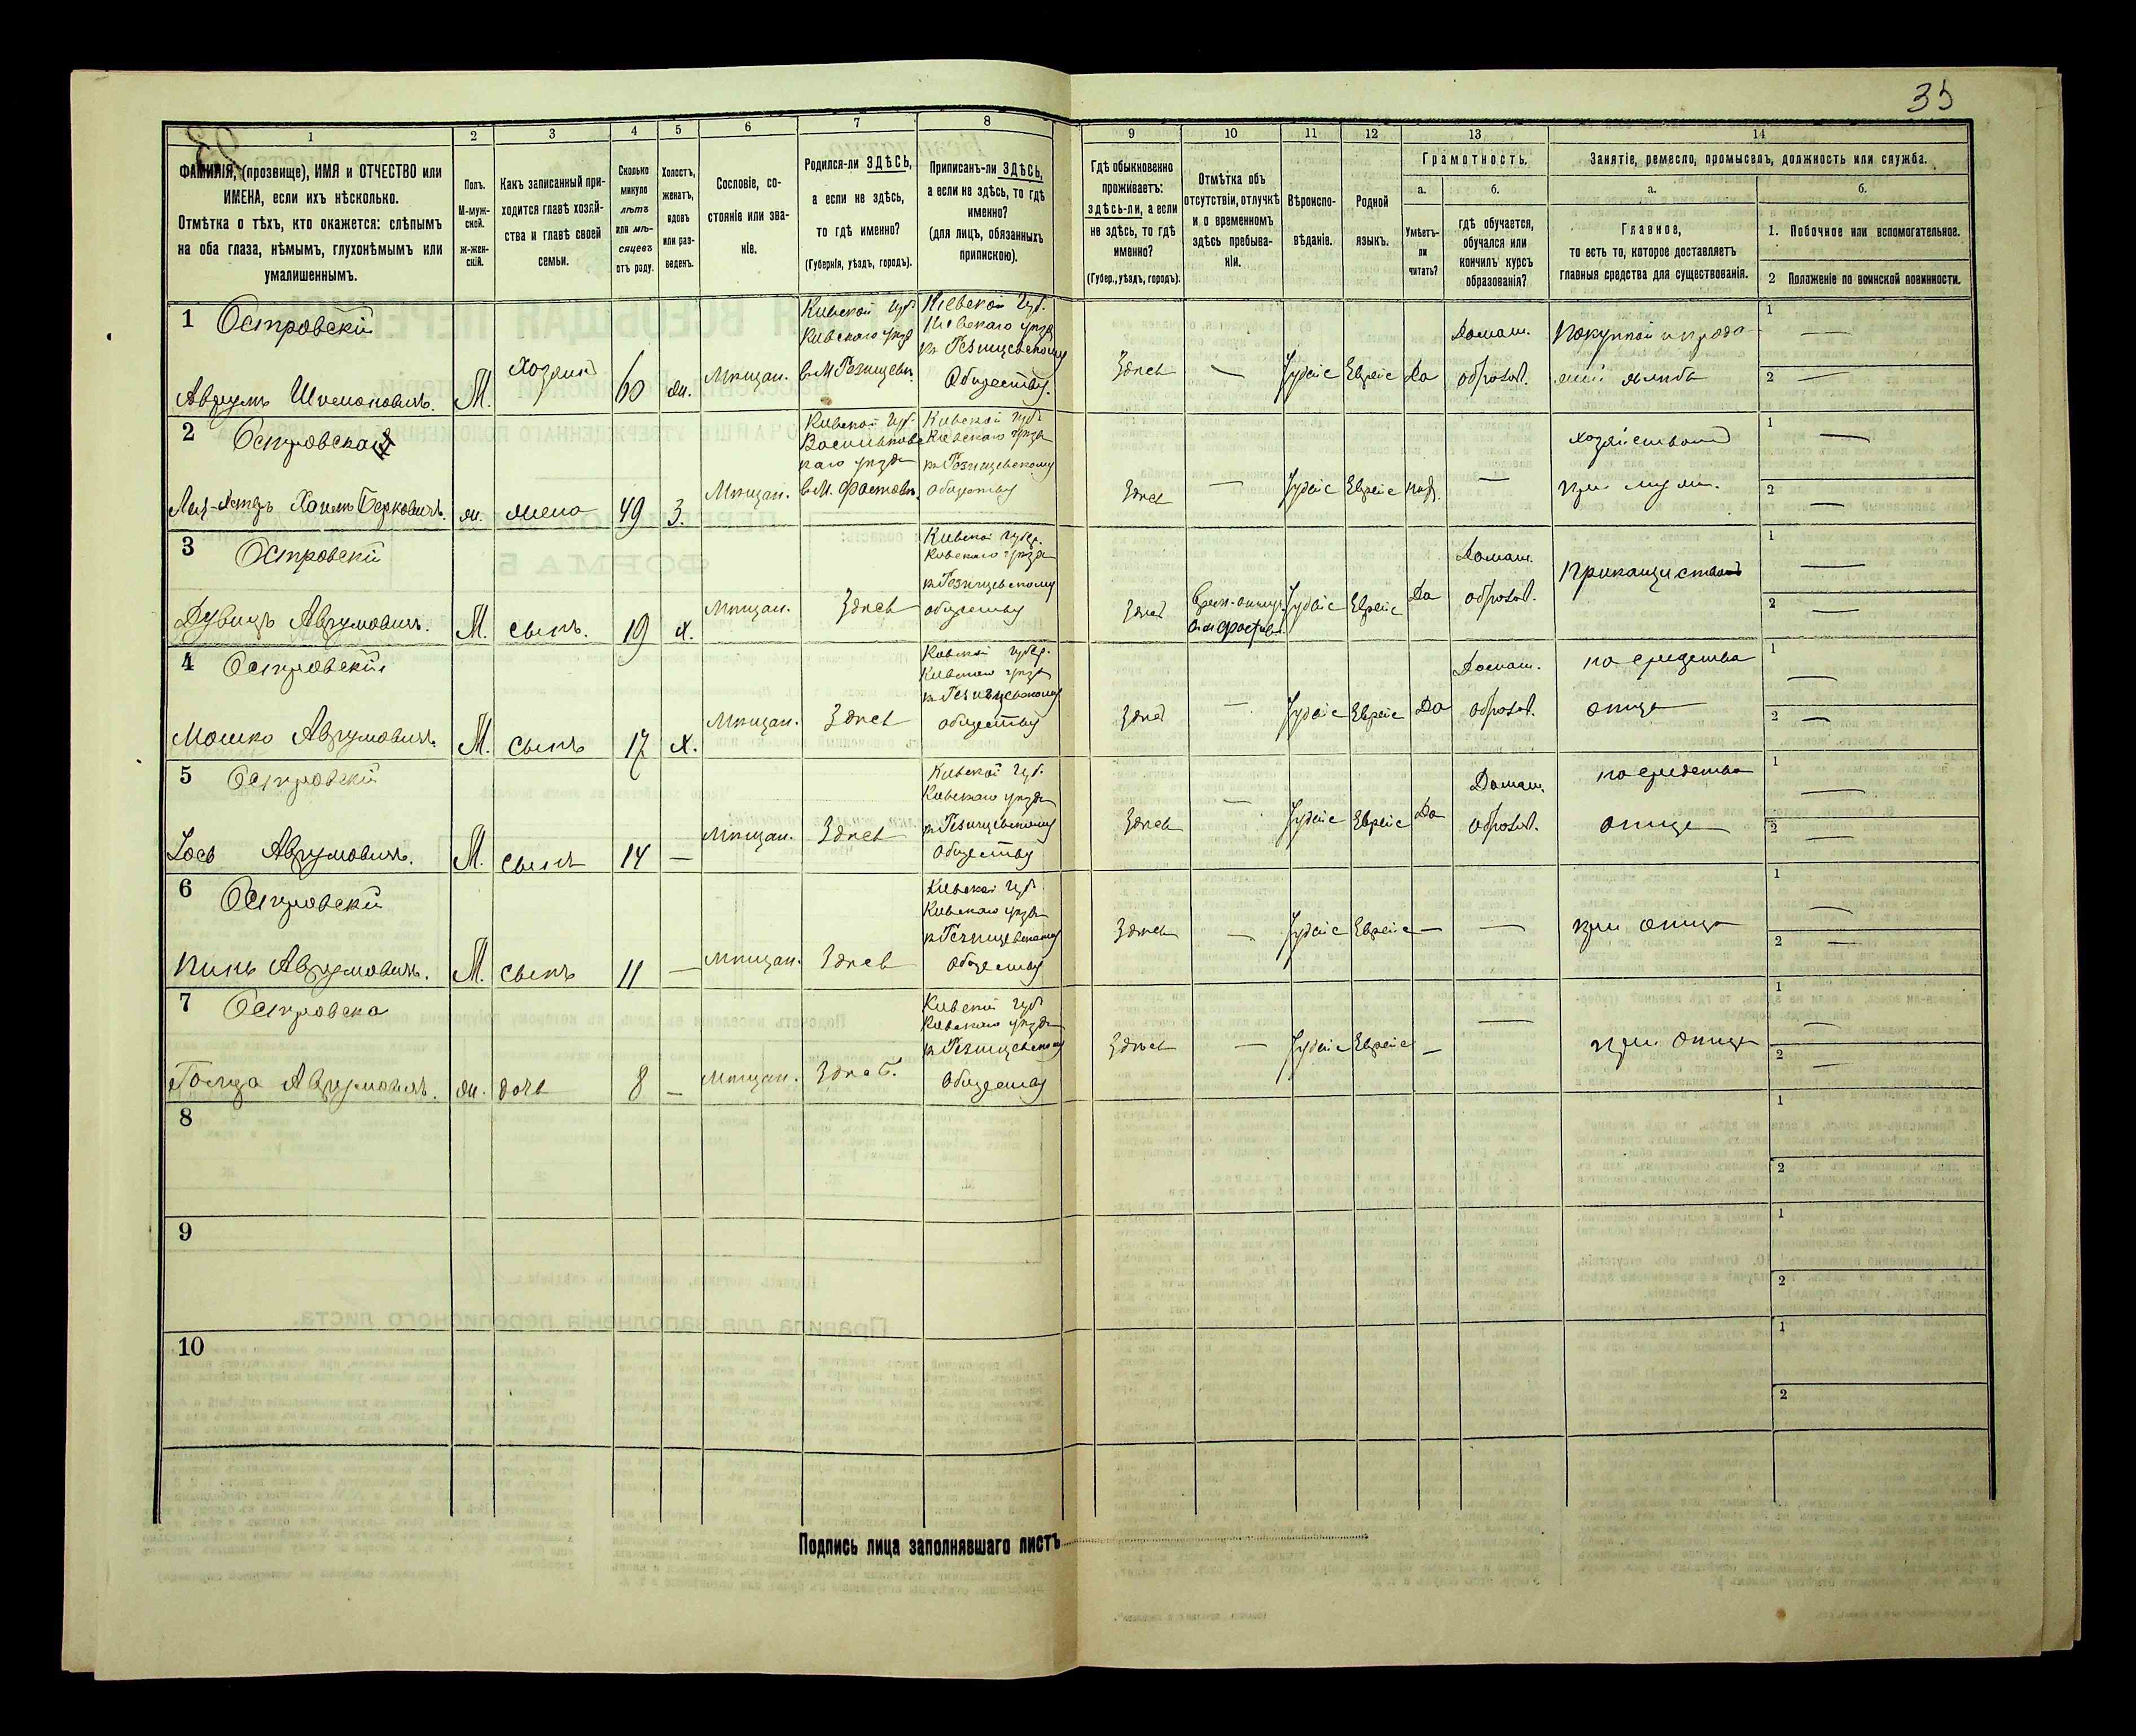 35
1
2
3
4
5
6
7
8
9
10
11
12
13
14
ФАМИЛІЯ, (прозвище), ИМЯ и ОТЧЕСТВО или
ИМЕНА, если ихъ нѣсколько.
Отмѣтка о тѣхъ, кто окажется: слѣпымъ
на оба глаза, нѣмымъ, глухонѣмымъ или
умалишеннымъ.
Полъ.
М-муж-
ской.
Ж-жен-
скій.
Какъ записанный при-
ходится главѣ хозяй-
ства и главѣ своей
семьи.
Сколько
минуло
лѣтъ
или мѣ-
сяцевъ
отъ роду.
Холостъ,
женатъ,
вдовъ
или раз-
веденъ.
Сословіе, со-
стояніе или зва-
ніе.
Родился-ли ЗДѢСЬ,
а если не здѣсь,
то гдѣ именно?
(Губернія, уѣздъ, городъ).
Приписанъ-ли ЗДѢСЬ,
а если не здѣсь, то гдѣ
именно?
(для лицъ, обязанныхъ
припискою).
Гдѣ обыкновенно
проживаетъ:
здѣсь-ли, а если
не здѣсь, то гдѣ
именно?
(Губер., уѣздъ, городъ).
Отмѣтка объ
отсутствіи, отлучкѣ
и о временномъ
здѣсь пребыва-
ніи.
Вѣроиспо-
вѣданіе.
Родной
языкъ.
Грамотность.
а.
Умѣетъ-
ли
читать?
б.
гдѣ обучается,
обучался или
кончилъ курсъ
образованія?
Занятіе, ремесло, промыселъ, должность или служба.
а.
Главное,
то есть то, которое доставляетъ
главныя средства для существованія.
б.
1. Побочное или вспомогательное.
2 Положеніе по воинской повинности.
1 Островскій
Аврумъ Шимоновичъ.
М.
Хозяинъ
60
ж.
Мѣщан.
Кіевской губ.
Кіевскаго уѣзд
въ М Резищевѣ.
Кіевской губ.
Кіевскаго уѣзда
къ Резищевскому
Обществу.
Здѣсь
—
Іудейс
Еврейс
Да
Домаш.
образов.
Покупкой и прода-
жей
1 —
2 —
2 Островская
Хаимъ Берковичъ.
ж.
жена
49
З.
Мѣщан.
Кіевской губ.
Васильковс
каго уѣзда
въ М. Фастовѣ.
Кіевской губ.
Кіевскаго уѣзда
къ Резищевскому
обществу
Здѣсь
—
Іудейс
Еврейс
—
Хозяйствомъ
при мужѣ.
1 —
2 —
3 Островскій
Дувидъ Аврумовичъ.
М.
сынъ.
19
х.
Мѣщан.
Здѣсь
Кіевской губер.
Кіевскаго уѣзда
къ Резищевскому
обществу
Здѣсь
Іудейс
Еврейс
Да
Домаш.
образов.
1 —
2 —
4 Островскій
Мошко Аврумовичъ.
М.
Сынъ
17
х.
Мѣщан.
Здѣсь
Кіевской губер.
Кіевскаго уѣзда
къ Резищевскому
обществу
Здѣсь
—
Іудейс
Еврейс
Да
Домаш.
образов.
на средства
отца
1 —
2 —
5 Островскій
Іось Аврумовичъ.
М.
Сынъ
14
—
Мѣщан.
Здѣсь
Кіевской губ.
Кіевскаго уѣзда
къ Резищевскому
Обществу
Здѣсь
—
Іудейс
Еврейс
Да
Домаш.
образов.
на средства
отца
1 —
2 —
6 Островскій
Пинь Аврумовичъ.
М.
Сынъ
11
—
Мѣщан.
Здѣсь
Кіевской губ.
Кіевскаго уѣзда
къ Резищевскому
Обществу
Здѣсь
—
Іудейс
Еврейс
—
—
при отцѣ
1 —
2 —
7 Островска
Голда Аврумовичъ.
ж.
дочь
8
—
Мѣщан.
Здѣсь.
Кіевской губ.
Кіевскаго уѣзда
къ Резищевскому
Обществу
Здѣсь
—
Іудейс
Еврейс
—
—
при отцѣ
1 —
2 —
8
1
2
9
1
2
10
1
2
Подпись лица заполнявшаго листъ